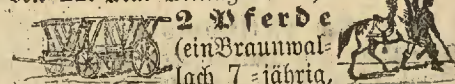 2 Pferde
(ein Braunwal=
lach 7=jährig,